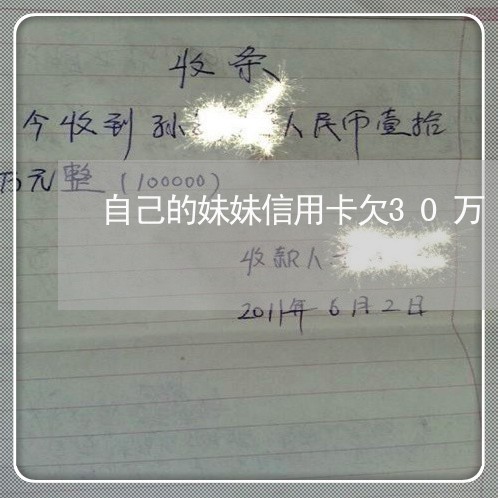 收条
今收到孙 人民币壹拾
万元整(100000)
自己的妹妹信用卡欠30万
收款人
2011年6月2日